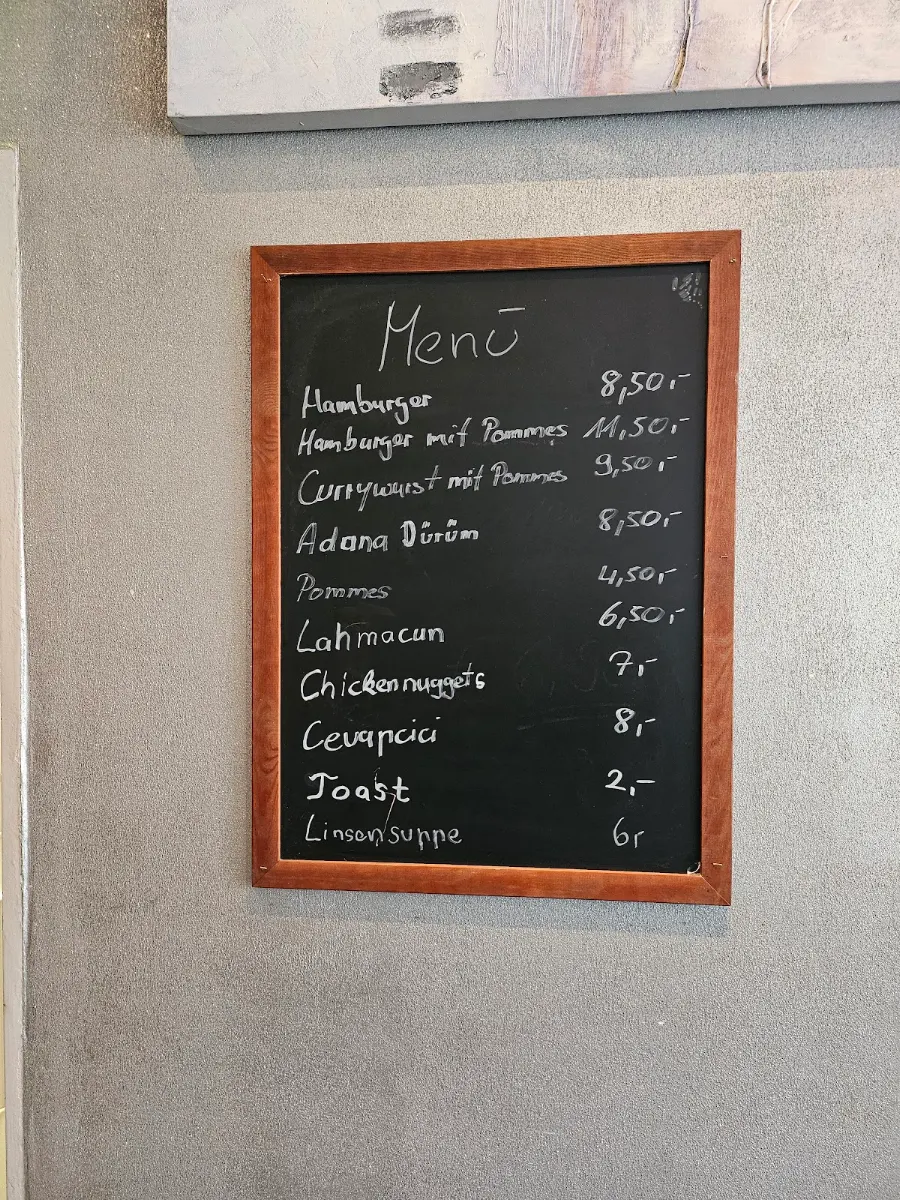 Menü
Hamburger 8,50,-
Hamburger mit Pommes 11,50,-
Currywurst mit Pommes 9,50,-
Adana Dürüm 8,50,-
Pommes 4,50,-
Lahmacun 6,50,-
Chickennuggets 7,-
Cevapcici 8,-
Toast 2,-
Linsensuppe 6,-